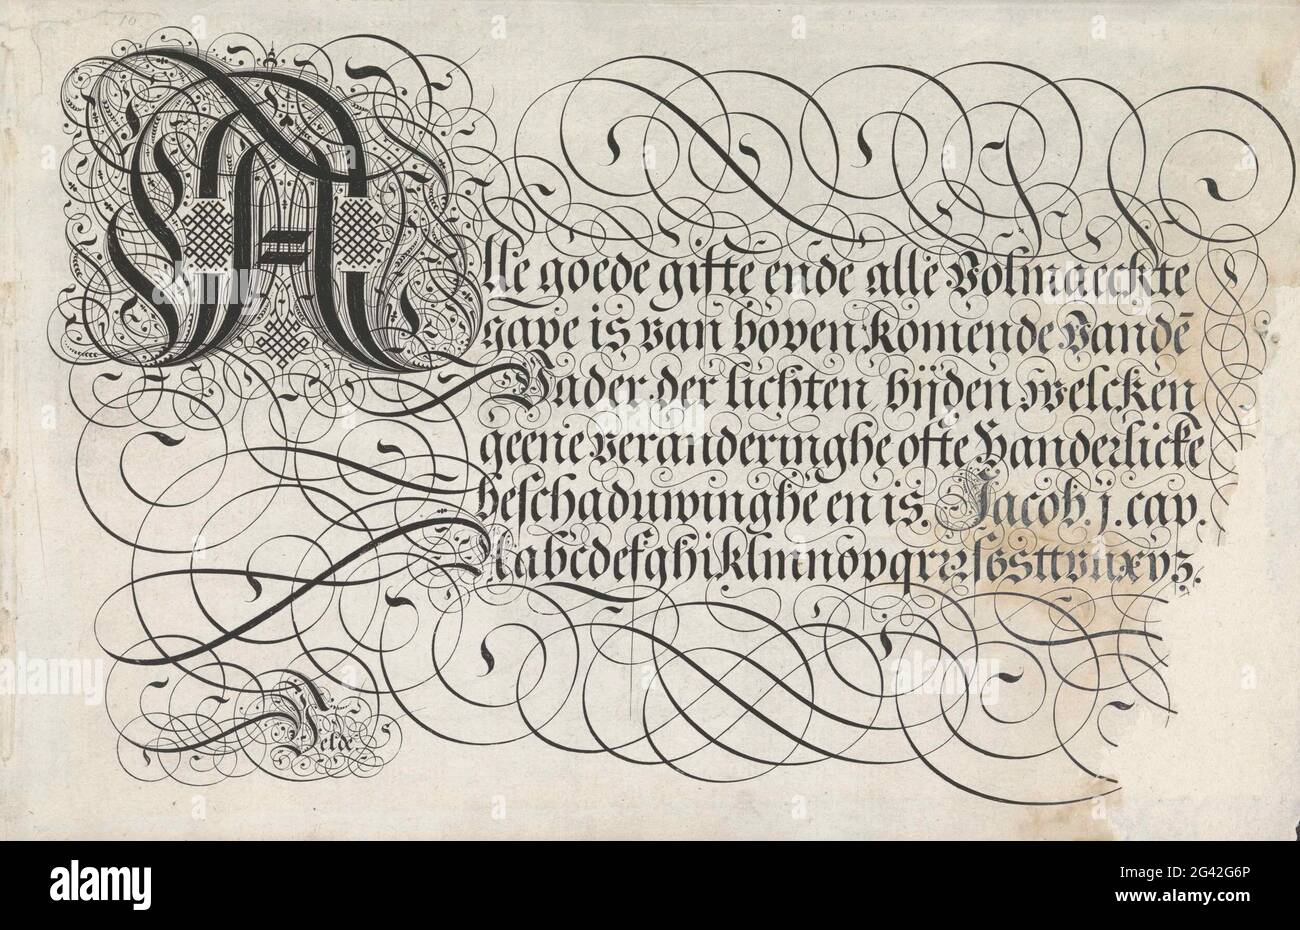 Alle goede gifte ende alle Volmaeckte
gave is van boven komende Vandē
Vader der lichten bijden Welcken
geene veranderinghe ofte Handerlicke
beschaduwinghe en is. Jacob. j. cap.
A abcdefghiklmnopqrrsſssttvuxyz.
Velde
10
a
alamy
alamy
Image ID: 2G42G6P
www.alamy.com